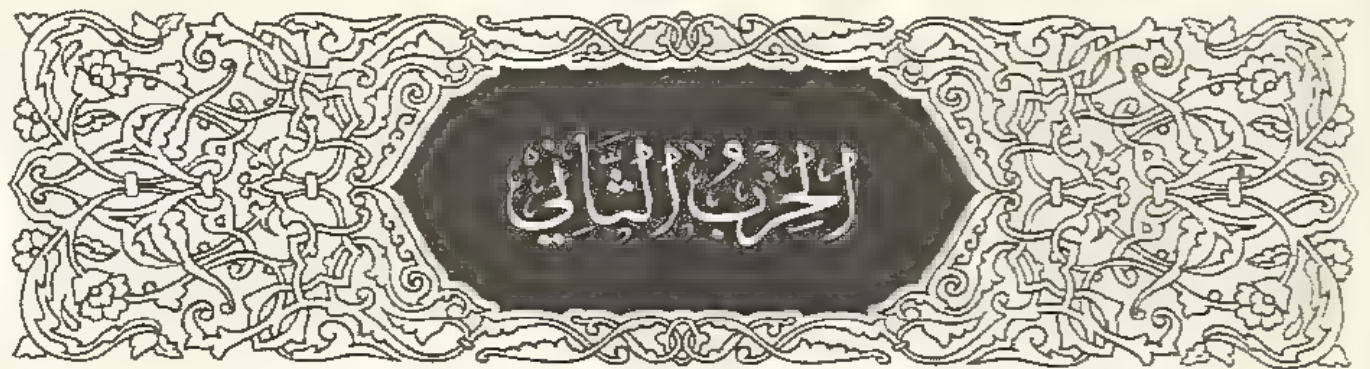 الحِزبُ الثَّانِي